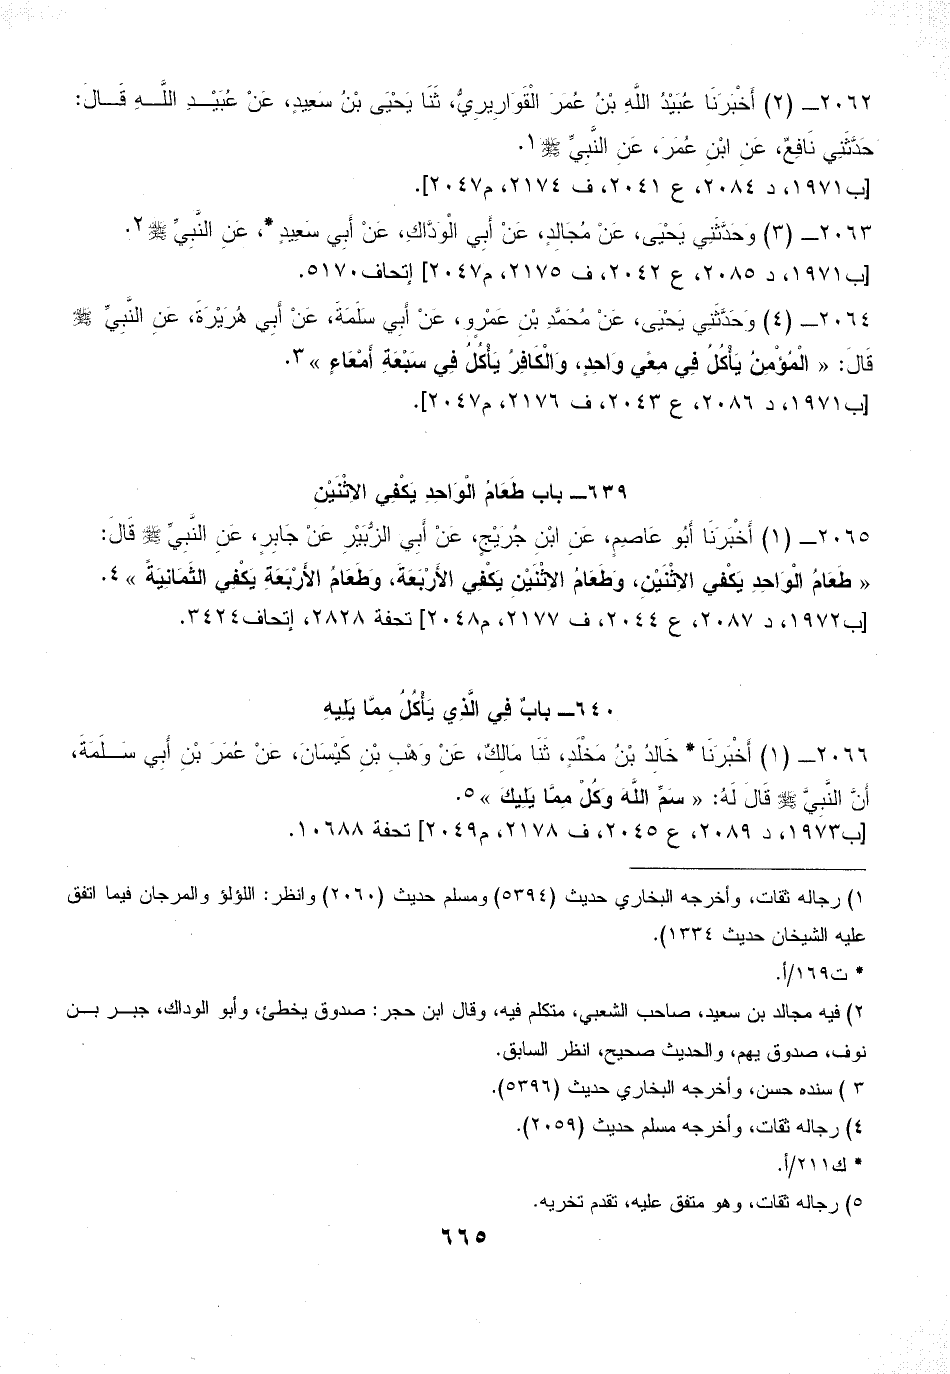 ٢٠٦٢ـ (٢) أَخْبَرَنَا عُبَيْدُ اللَّهِ بْنُ عُمَرَ الْقَوَارِيرِيُّ، ثَنَا يَحْيَى بْنُ سَعِيدٍ، عَنْ عُبَيْدِ اللَّهِ قَالَ:
حَدَّثَنِي نَافِعٌ، عَنِ ابْنِ عُمَرَ، عَنِ النَّبِيِّ ﷺ ١.
[ب١٩٧١، د ٢٠٨٤، ع ٢٠٤١، ف ٢١٧٤، م٢٠٤٧].
٢٠٦٣ـ (٣) وَحَدَّثَنِي يَحْيَى، عَنْ مُجَالِدٍ، عَنْ أَبِي الْوَدَّاكِ، عَنْ أَبِي سَعِيدٍ *، عَنِ النَّبِيِّ ﷺ ٢.
[ب١٩٧١، د ٢٠٨٥، ع ٢٠٤٢، ف ٢١٧٥، م٢٠٤٧] إتحاف٥١٧٠.
٢٠٦٤ـ (٤) وَحَدَّثَنِي يَحْيَى، عَنْ مُحَمَّدِ بْنِ عَمْرٍو، عَنْ أَبِي سَلَمَةَ، عَنْ أَبِي هُرَيْرَةَ، عَنِ النَّبِيِّ ﷺ
قَالَ: « الْمُؤْمِنُ يَأْكُلُ فِي مِعًى وَاحِدٍ، وَالْكَافِرُ يَأْكُلُ فِي سَبْعَةِ أَمْعَاءٍ » ٣.
[ب١٩٧١، د ٢٠٨٦، ع ٢٠٤٣، ف ٢١٧٦، م٢٠٤٧].
٦٣٩ـ باب طَعَامُ الْوَاحِدِ يَكْفِي الاِثْنَيْنِ
٢٠٦٥ـ (١) أَخْبَرَنَا أَبُو عَاصِمٍ، عَنِ ابْنِ جُرَيْجٍ، عَنْ أَبِي الزُّبَيْرِ عَنْ جَابِرٍ، عَنِ النَّبِيِّ ﷺ قَالَ:
« طَعَامُ الْوَاحِدِ يَكْفِي الاِثْنَيْنِ، وَطَعَامُ الاِثْنَيْنِ يَكْفِي الأَرْبَعَةَ، وَطَعَامُ الأَرْبَعَةِ يَكْفِي الثَّمَانِيَةَ » ٤.
[ب١٩٧٢، د ٢٠٨٧، ع ٢٠٤٤، ف ٢١٧٧، م٢٠٤٨] تحفة ٢٨٢٨، إتحاف٣٤٢٤.
٦٤٠ـ بابٌ فِي الَّذِي يَأْكُلُ مِمَّا يَلِيهِ
٢٠٦٦ـ (١) أَخْبَرَنَا * خَالِدُ بْنُ مَخْلَدٍ، ثَنَا مَالِكٌ، عَنْ وَهْبِ بْنِ كَيْسَانَ، عَنْ عُمَرَ بْنِ أَبِي سَلَمَةَ،
أَنَّ النَّبِيَّ ﷺ قَالَ لَهُ: « سَمِّ اللَّهَ وَكُلْ مِمَّا يَلِيكَ » ٥.
[ب١٩٧٣، د ٢٠٨٩، ع ٢٠٤٥، ف ٢١٧٨، م٢٠٤٩] تحفة ١٠٦٨٨.
١) رجاله ثقات، وأخرجه البخاري حديث (٥٣٩٤) ومسلم حديث (٢٠٦٠) وانظر: اللؤلؤ والمرجان فيما اتفق
عليه الشيخان حديث ١٣٣٤).
* ت١٦٩/أ.
٢) فيه مجالد بن سعيد، صاحب الشعبي، متكلم فيه، وقال ابن حجر: صدوق يخطئ، وأبو الوداك، جبر بن
نوف، صدوق يهم، والحديث صحيح، انظر السابق.
٣ ) سنده حسن، وأخرجه البخاري حديث (٥٣٩٦).
٤) رجاله ثقات، وأخرجه مسلم حديث (٢٠٥٩).
* ك٢١١/أ.
٥) رجاله ثقات، وهو متفق عليه، تقدم تخريه.
٦٦٥